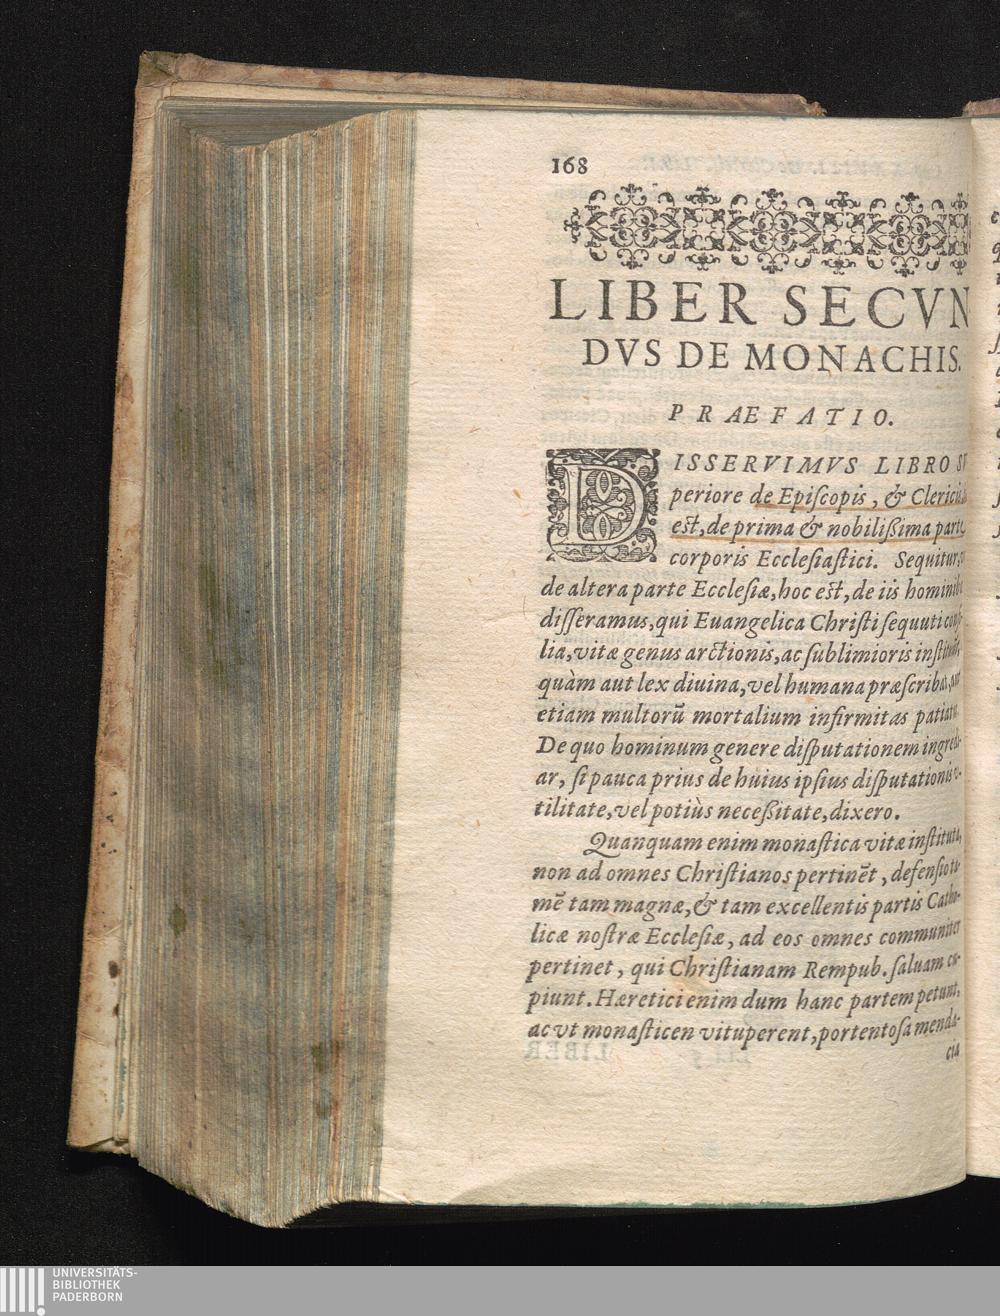 168
LIBER SECVN
DVS DE MONACHIS.
PRÆFATIO.
DISSERVIMVS LIBRO SV
periore de Episcopis, & Clericis
est, de prima & nobilissima parte
corporis Ecclesiastici. Sequitur,
de altera parte Ecclesiæ, hoc est, de iis homini
disseramus, qui Euangelica Christi sequuti
lia, vitæ genus arctionis, ac sublimioris
quàm aut lex diuina, vel humana præscribat, aut
etiam multorũ mortalium infirmitas
De quo hominum genere disputationem ingredi-
ar, si pauca prius de huius ipsius disputationis v-
tilitate, vel potiùs necessitate, dixero.
Quanquam enim monastica vitæ instituta,
non ad omnes Christianos pertinẽt, defensio ta-
mẽ tam magnæ, & tam excellentis partis Catho-
licæ nostræ Ecclesiæ, ad eos omnes communiter
pertinet, qui Christianam Rempub. saluam cu-
piunt. Hæretici enim dum hanc partem petunt,
ac vt monasticen vituperent, portentosa menda-
cia
UNIVERSITÄTS-
BIBLIOTHEK
PADERBORN